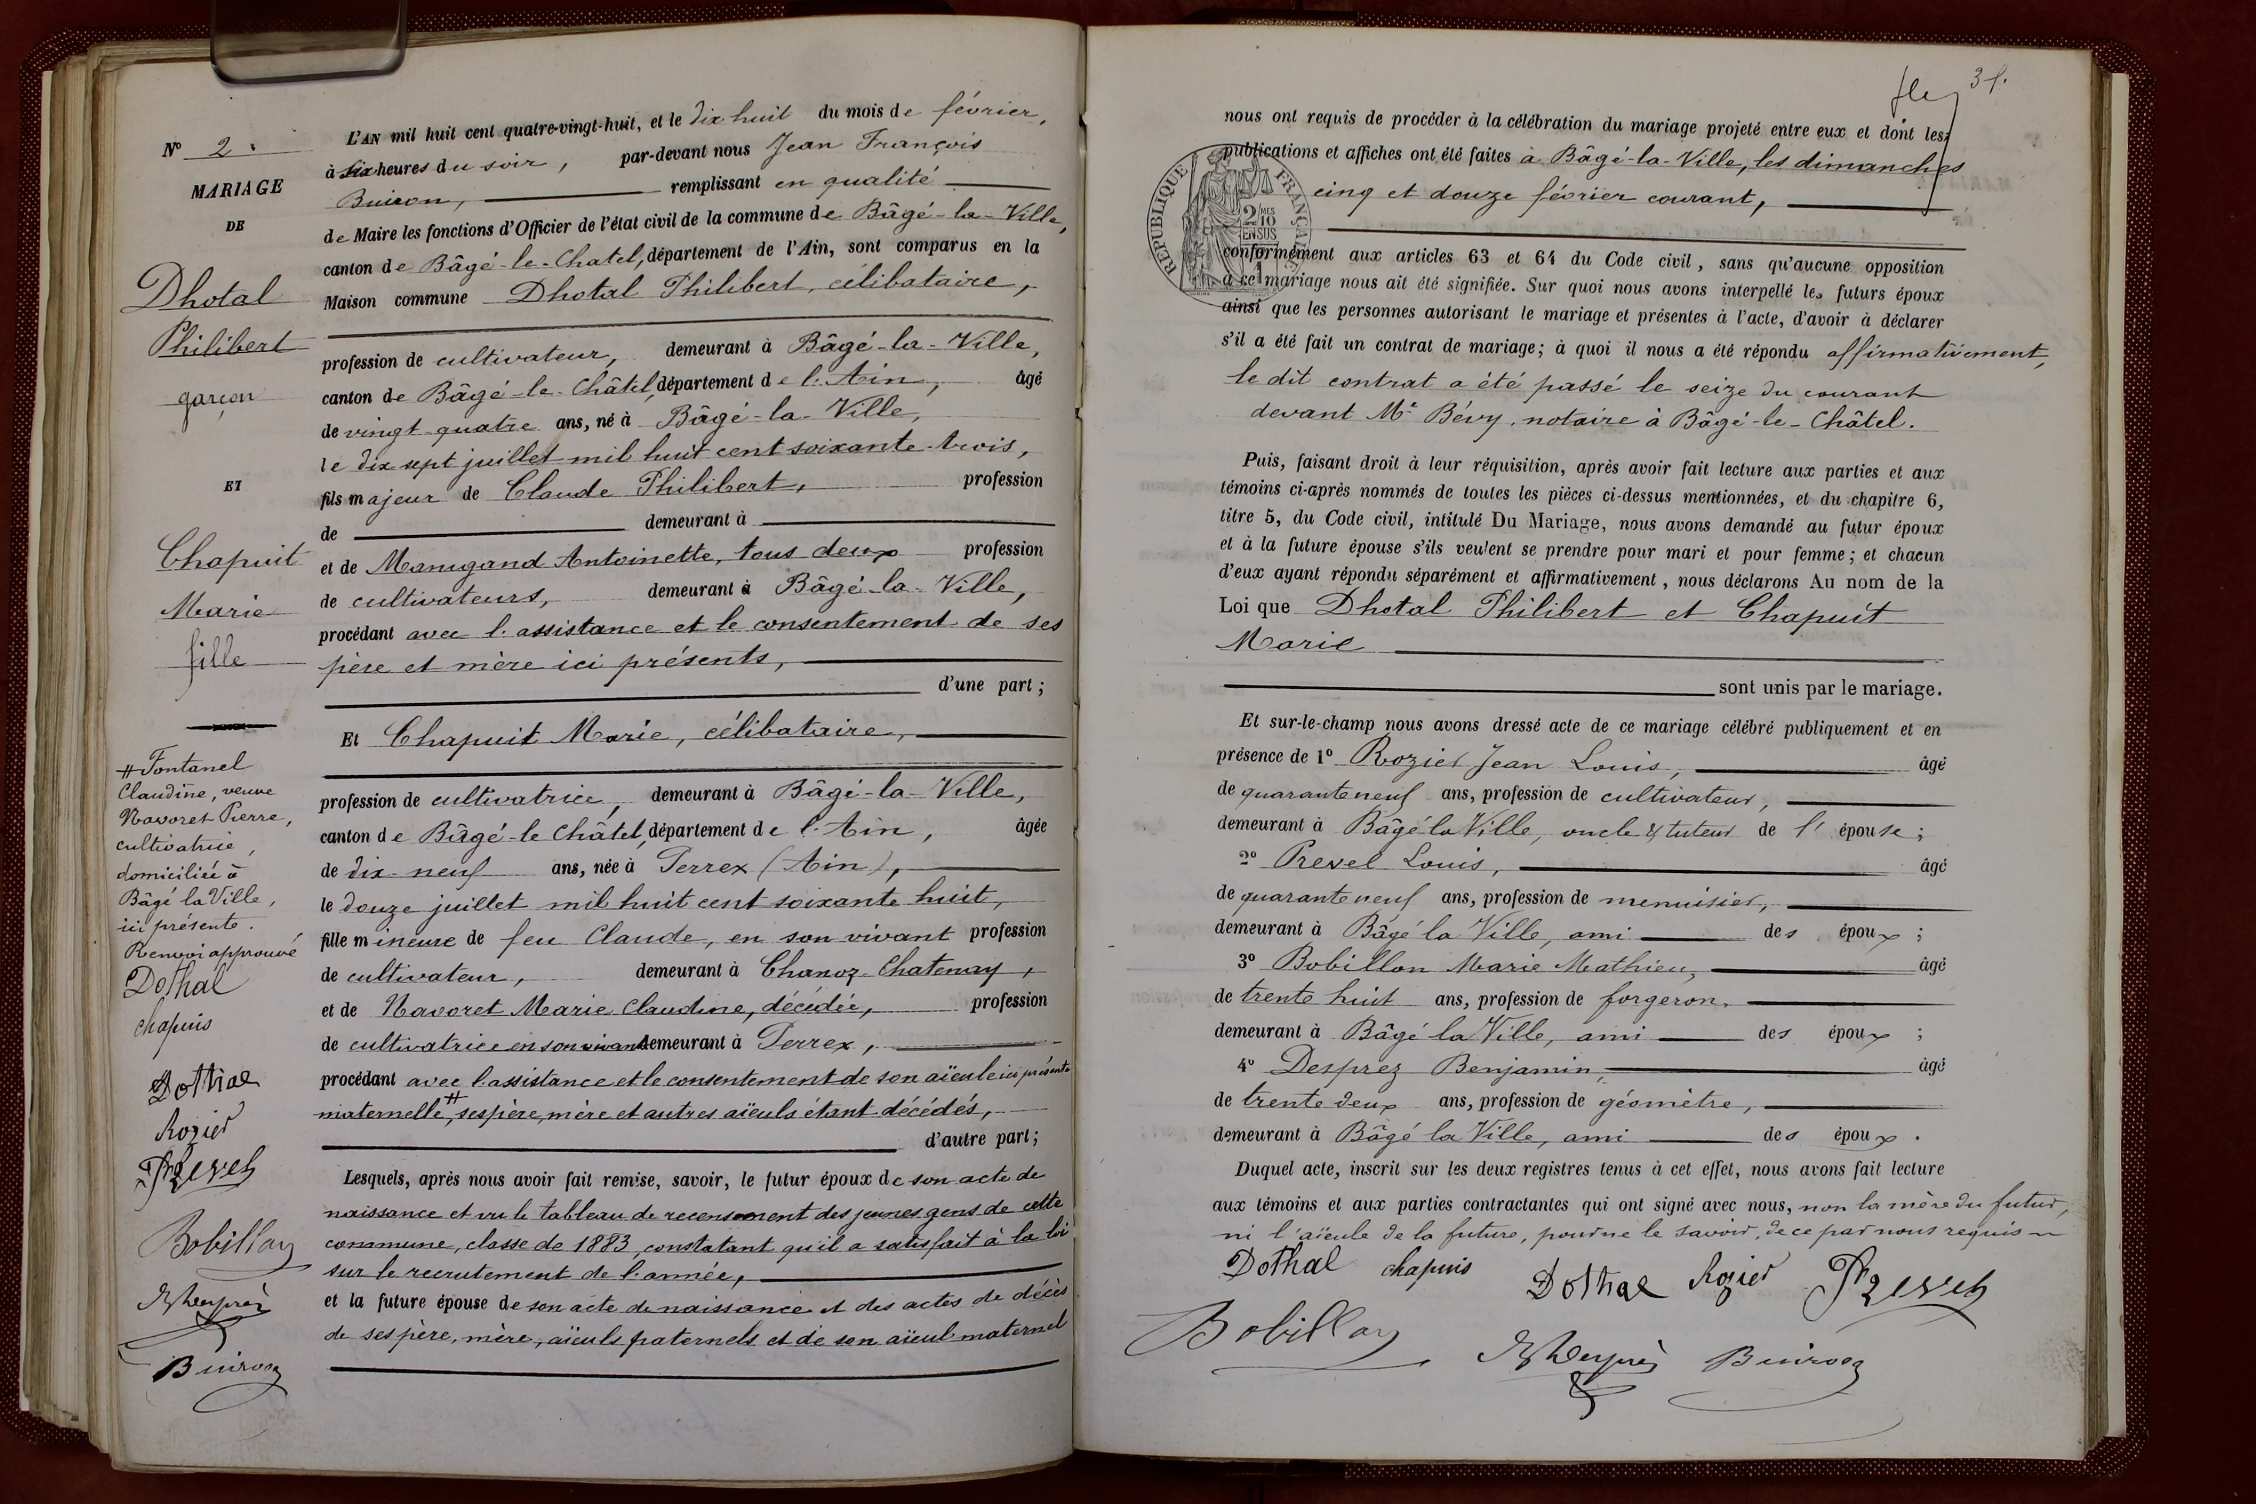 N° 2.
MARIAGE
DE
Dhotal
Philibert
garçon
ET
Chapuit
Marie
fille
# Fontanel
Claudine, veuve
Navoret Pierre,
cultivatrice,
domiciliée à
Bâgé la Ville,
ici présente.
Renvoi approuvé
Dothal
chapuis
Dothal
Rozier
Prevel
Bobillon
Desprez
Buiron
L'AN mil huit cent quatre-vingt-huit, et le dix huit du mois de février,
à six heures du soir, par-devant nous Jean François
Buiron, remplissant en qualité
de Maire les fonctions d'Officier de l'état civil de la commune de Bâgé-la-Ville,
canton de Bâgé-le-Chatel, département de l'Ain, sont comparus en la
Maison commune Dhotal Philibert, célibataire,
profession de cultivateur, demeurant à Bâgé-la-Ville,
canton de Bâgé-le-Châtel, département de l'Ain, âgé
de vingt quatre ans, né à Bâgé-la-Ville,
le dix sept juillet mil huit cent soixante trois,
fils majeur de Claude Philibert, profession
de demeurant à
et de Manigand Antoinette, tous deux profession
de cultivateurs, demeurant à Bâgé-la-Ville,
procédant avec l'assistance et le consentement de ses
père et mère ici présents,
d'une part;
Et Chapuit Marie, célibataire,
profession de cultivatrice, demeurant à Bâgé-la-Ville,
canton de Bâgé-le-Châtel, département de l'Ain, âgée
de dix-neuf ans, née à Perrex (Ain),
le douze juillet mil huit cent soixante huit,
fille mineure de feu Claude, en son vivant profession
de cultivateur, demeurant à Chanoz-Chatenay,
et de Navoret Marie Claudine, décédée, profession
de cultivatrice en son vivant demeurant à Perrex,
procédant avec l'assistance et le consentement de son aïeule ici présente
maternelle #, ses père, mère et autres aïeuls étant décédés,
d'autre part;
Lesquels, après nous avoir fait remise, savoir, le futur époux de son acte de
naissance et vu le tableau de recensement des jeunes gens de cette
commune, classe de 1883, constatant qu'il a satisfait à la loi
sur le recrutement de l'armée,
et la future épouse de son acte de naissance et des actes de décès
de ses père, mère, aïeuls paternels et de son aïeul maternel
nous ont requis de procéder à la célébration du mariage projeté entre eux et dont les
publications et affiches ont été faites à Bâgé-la-Ville, les dimanches
cinq et douze février courant,
RÉPUBLIQUE FRANÇAISE
2/10 MES
EN SUS
conformément aux articles 63 et 64 du Code civil, sans qu'aucune opposition
à ce mariage nous ait été signifiée. Sur quoi nous avons interpellé les futurs époux
ainsi que les personnes autorisant le mariage et présentes à l'acte, d'avoir à déclarer
s'il a été fait un contrat de mariage; à quoi il nous a été répondu affirmativement,
le dit contrat a été passé le seize du courant
devant Me Bévy, notaire à Bâgé-le-Châtel.
Puis, faisant droit à leur réquisition, après avoir fait lecture aux parties et aux
témoins ci-après nommés de toutes les pièces ci-dessus mentionnées, et du chapitre 6,
titre 5, du Code civil, intitulé Du Mariage, nous avons demandé au futur époux
et à la future épouse s'ils veulent se prendre pour mari et pour femme; et chacun
d'eux ayant répondu séparément et affirmativement, nous déclarons Au nom de la
Loi que Dhotal Philibert et Chapuit
Marie
sont unis par le mariage.
Et sur-le-champ nous avons dressé acte de ce mariage célébré publiquement et en
présence de 1° Rozier Jean Louis, âgé
de quarante neuf ans, profession de cultivateur,
demeurant à Bâgé la Ville, oncle & tuteur de l'épouse;
2° Prevel Louis, âgé
de quarante neuf ans, profession de menuisier,
demeurant à Bâgé la Ville, ami des époux;
3° Bobillon Marie Mathieu, âgé
de trente huit ans, profession de forgeron,
demeurant à Bâgé la Ville, ami des époux;
4° Desprez Benjamin, âgé
de trente deux ans, profession de géomètre,
demeurant à Bâgé la Ville, ami des époux.
Duquel acte, inscrit sur les deux registres tenus à cet effet, nous avons fait lecture
aux témoins et aux parties contractantes qui ont signé avec nous, non la mère du futur,
ni l'aïeule de la future, pour ne le savoir, de ce par nous requis
Dothal chapuis Dothal Rozier Prevel
Bobillon Desprez Buiron